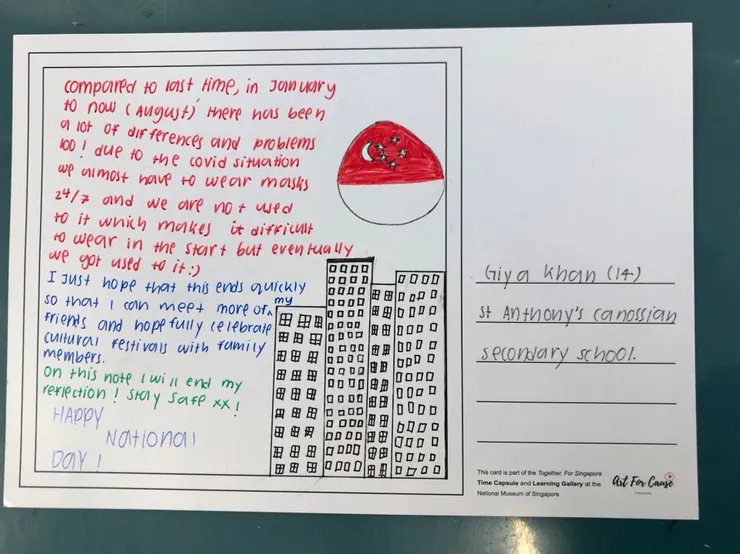 compared to last time, in January
to now (August) there has been
a lot of differences and problems
too! due to the covid situation
we almost have to wear masks
24/7 and we are not used
to it which makes it difficult
to wear in the start but eventually
we got used to it :)
I just hope that this ends quickly
so that I can meet more of my
friends and hopefully celebrate
cultural festivals with family
members.
on this note I will end my
reflection! Stay safe xx!
HAPPY
NATIONAl
DAY!
Giya Khan (14)
St Anthony's canossian
secondary school.
This card is part of the Together, For Singapore
Time Capsule and Learning Gallery at the
National Museum of Singapore.
Art For Cause